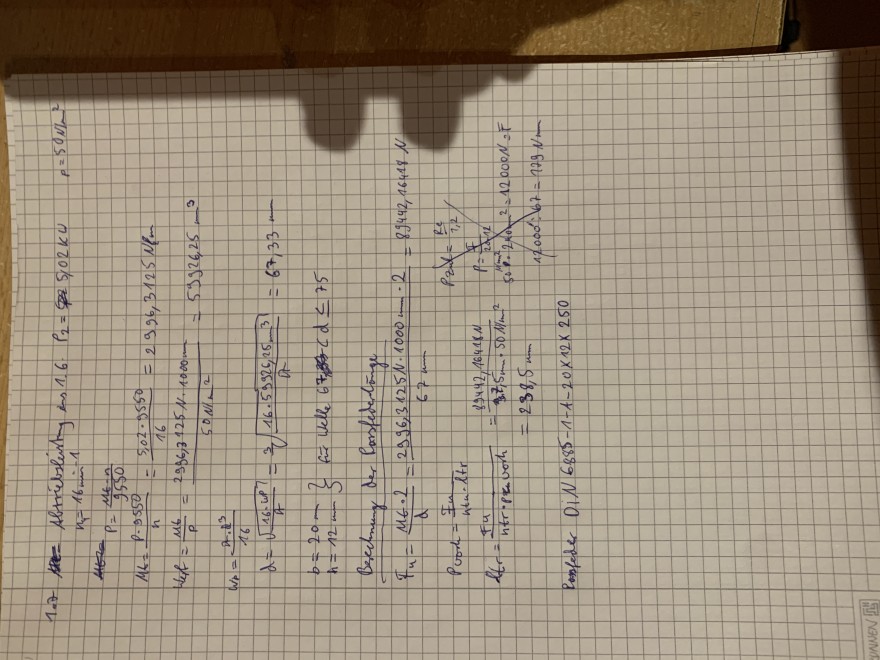 1.7 Abtriebsleistung aus 1.6 P₂ = 5,02 KW p = 50 N/mm²
n = 16 min⁻¹
P = Mt·n / 9550
Mt = P·9550 / n = 5,02·9550 / 16 = 2996,3125 Nm
Werf = Mt / p = 2996,3125 N·1000mm / 50 N/mm² = 59926,25 mm³
Wp = π·d³ / 16
d = ³√(16·Wp / π) = ³√(16·59926,25 mm³ / π) = 67,33 mm
b = 20 mm
h = 12 mm } für Welle < d ≤ 75
Berechnung der Passfederlänge
Fu = Mt·2 / d = 2996,3125 N·1000 mm·2 / 67 mm = 89442,16418 N
Pvorh = Fu / htr·ltr
Pzul = Re / 1,2
ltr = Fu / htr·pvorh = 89442,16418 N / 7,5mm·50 N/mm²
= 238,5 mm
50 N/mm² · 240 mm² = 12000 N = F
12000 · 67 = 179 Nm
Passfeder DIN 6885-1-A-20X12X250